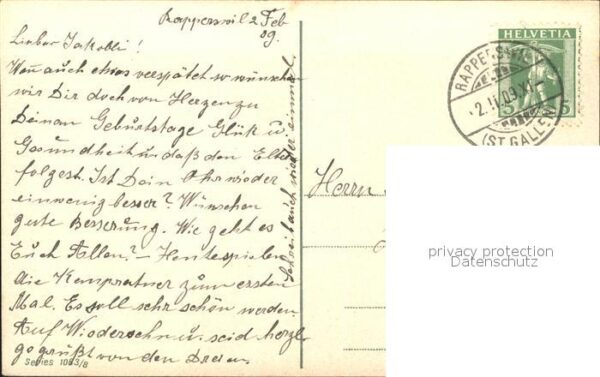 Rapperswil 2 Feb
09.
Lieber Jakobli!
Wenn auch etwas verspätet so wünschen
wir Dir doch von Herzen zu
Deinem Geburtstage Glük u.
Gesundheit u. daß den Eltern
folgest. Ist Dein Ohr wieder
ein wenig besser? Wünschen
gute Besserung. Wie geht es
Euch Allen? – Heute spielen
die Kempratner zum ersten
Mal. Es soll sehr schön werden.
Auf Wiedersehn u. seid herzl.
gegrüßt von den Dreien.
Schreib auch wieder einmal.
Series 1063/8
HELVETIA
5 5
RAPPERSWIL
2.II.09.XI
(ST.GALLEN)
Herrn
privacy protection
Datenschutz